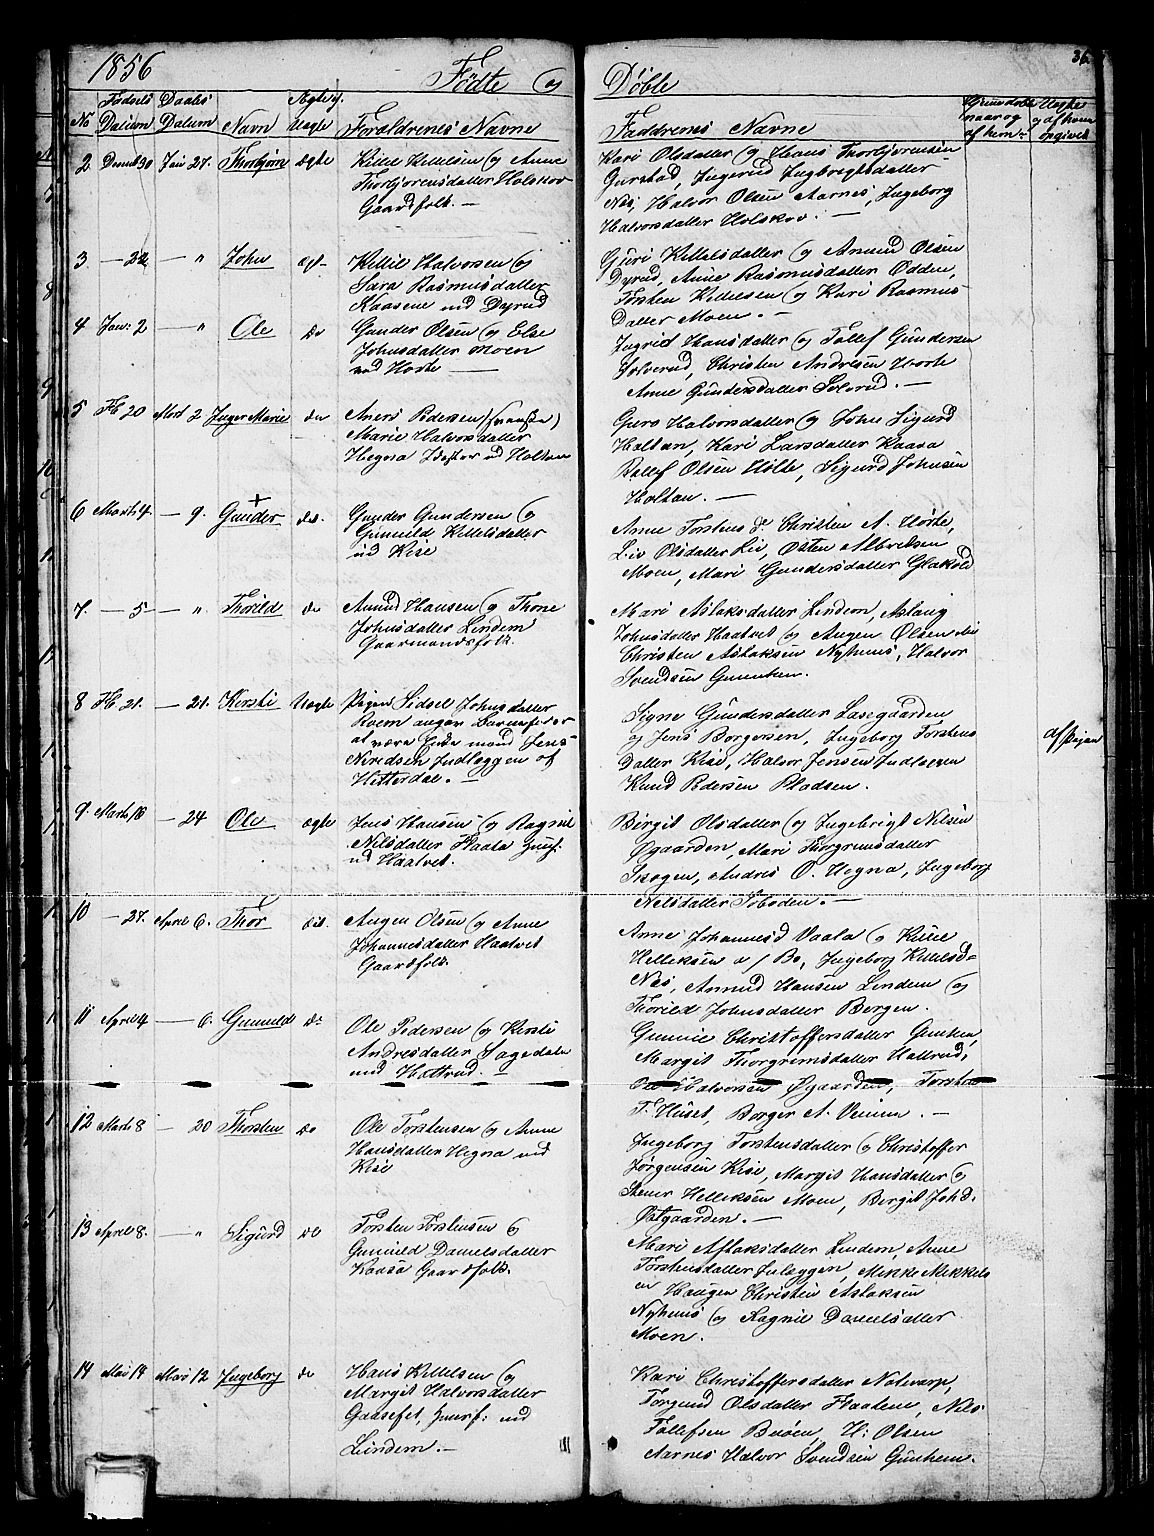 1856 Födte og Döbte 36.
No Födsels Datum Daabs Datum Navn Ægte el. Uægte Forældrenes Navne Faddrenes Navne
2 Decmb 30 Jan 27. Thorbjørn ægte Killil Killilsen og Anne
Thorbjørensdatter Holskov
Gaardfolk. —
Kari Olsdatter og Hans Thorbjørensen
Gurstad, Ingerid Ingbregtsdatter
Nes, Halvor Olsen Aarnes, Ingeborg
Halvorsdatter Holskov. —
3. — 22 — " John ægt- Killil Halvorsen og
Sara Rasmusdatter
Kaasene ved Dyrud
Guri Killilsdatter og Amund Olsen
Dyrud, Anne Rasmusdatter Odden,
Torsten Killilsen og Kari Rasmus
Datter Moen. —
4 Jan: 2 — " Ole Do Gunder Olsen og Else
Johnsdatter Moen
ved Horte —
Ingrid Hansdatter og Tollef Gundersen
Solverud, Christen Andresen Horte
Anne Gundersdatter Solverud. —
5 Feb 20 Mart 2 Inger Marie do Aners Pedersen
Marie Halvorsdatter
Hegna ved Holtan
Guro Halvorsdatter og John Sigurd
Holtan, Kari Larsdatter Kaasa
Rollef Olsen Holte, Sigurd Johnsen
Holtan. —
6 Marts 4. — 9. Gunder do. Gunder Gundersen og
Gunuild Killilsdatter
ud Kise
Anne Torstens d. Christen A. Hörte,
Liv Olsdatter Lie, Østen Albretsen
Moen, Mari Gundersdatter Glakold
7. — 5 — " Thorild do Amund Hansen og Thone
Johnsdatter Lindem
Gaarmandsfolk.
Mari Aslaksdatter Lindem, Aslaug
Johnsdatter Haatvet og Augen Olsen do
Christen Aslaksen Nyhuus, Halvor
Svendsen Gunnhem.
8 Feb 21. — 21. Kirsti Uægte Pigen Sidsel Johnsdatter
Kvern angav Barnefader
at være Enke mand Jens
Niridsen Indlæggen af
Hitterdal. —
Signe Gundersdatter Lasegaarden
og Jens Borgersen, Ingeborg Torstens
Datter Kise, Halvor Jensen Indlægen
Knud Pedersen Pladsen.
af Pigen
9. Marts 18 — 24 Ole ægte Jens Hansen og Ragnil
Nilsdatter Flaata
ud Haatvet.
Birgit Olsdatter og Ingebrigt Nilsen
Øgaarden, Mari Thorgrimsdatter
Skogen, Andres O. Hegna, Ingeborg
Nilsdatter Toboden. —
10 — 27. April 6. Thor do. Augen Olsen og Anne
Johannesdatter Haatvet
Gaardfolk.
Anne Johannesd Vaala og Killil
Helleksen a/ Bo, Ingeborg Killilsd=
Næs, Amund Hansen Lindem og
Thorild Johnsdatter Bergen.
11 April 4 — 6. Gunuild Do Ole Pedersen og Kirsti
Andresdatter Sagedalen
med Hattrud. —
Gunnil Christoffersdatter Gunhem,
Margit Thorgrimsdatter Hallrud,
Ole Halvorsen Øgaarden, Torsten
T. Huset, Borger A. Venum. —
12 Marts 8 — 20 Thorsten Do Ole Torstensen og Anne
Hansdatter Hegna ved
Kise
Ingeborg Torstensdatter og Christoffer
Jørgensen Kise, Margit Hansdatter og
Stener Helleksen Moen, Bergit Joh d.
Østgaarden. —
13 April 8. — " Sigurd do Torsten Torstensen o
Gunuild Danielsdatter
Kaasa Gaardfolk.
Mari Aslaksdatter Lindem, Anne
Torstensdatter Inlæggen, Mikke Mikkels
en Haugen Christen Aslaksen
Nyhuus og Ragnil Danielsdatter
Moen.
14 Mai 14 Mai 12 Ingeborg do Hans Killilsen og
Margit Halvorsdatter
Gaasefet, ud
Lindem. —
Kari Christoffersdatter Notevarp,
Torgund Olsdatter Flaatene, Nils
Tollefsen Buöen, H: Olsen
Aarnes Halvor Svendsen Gunhem.